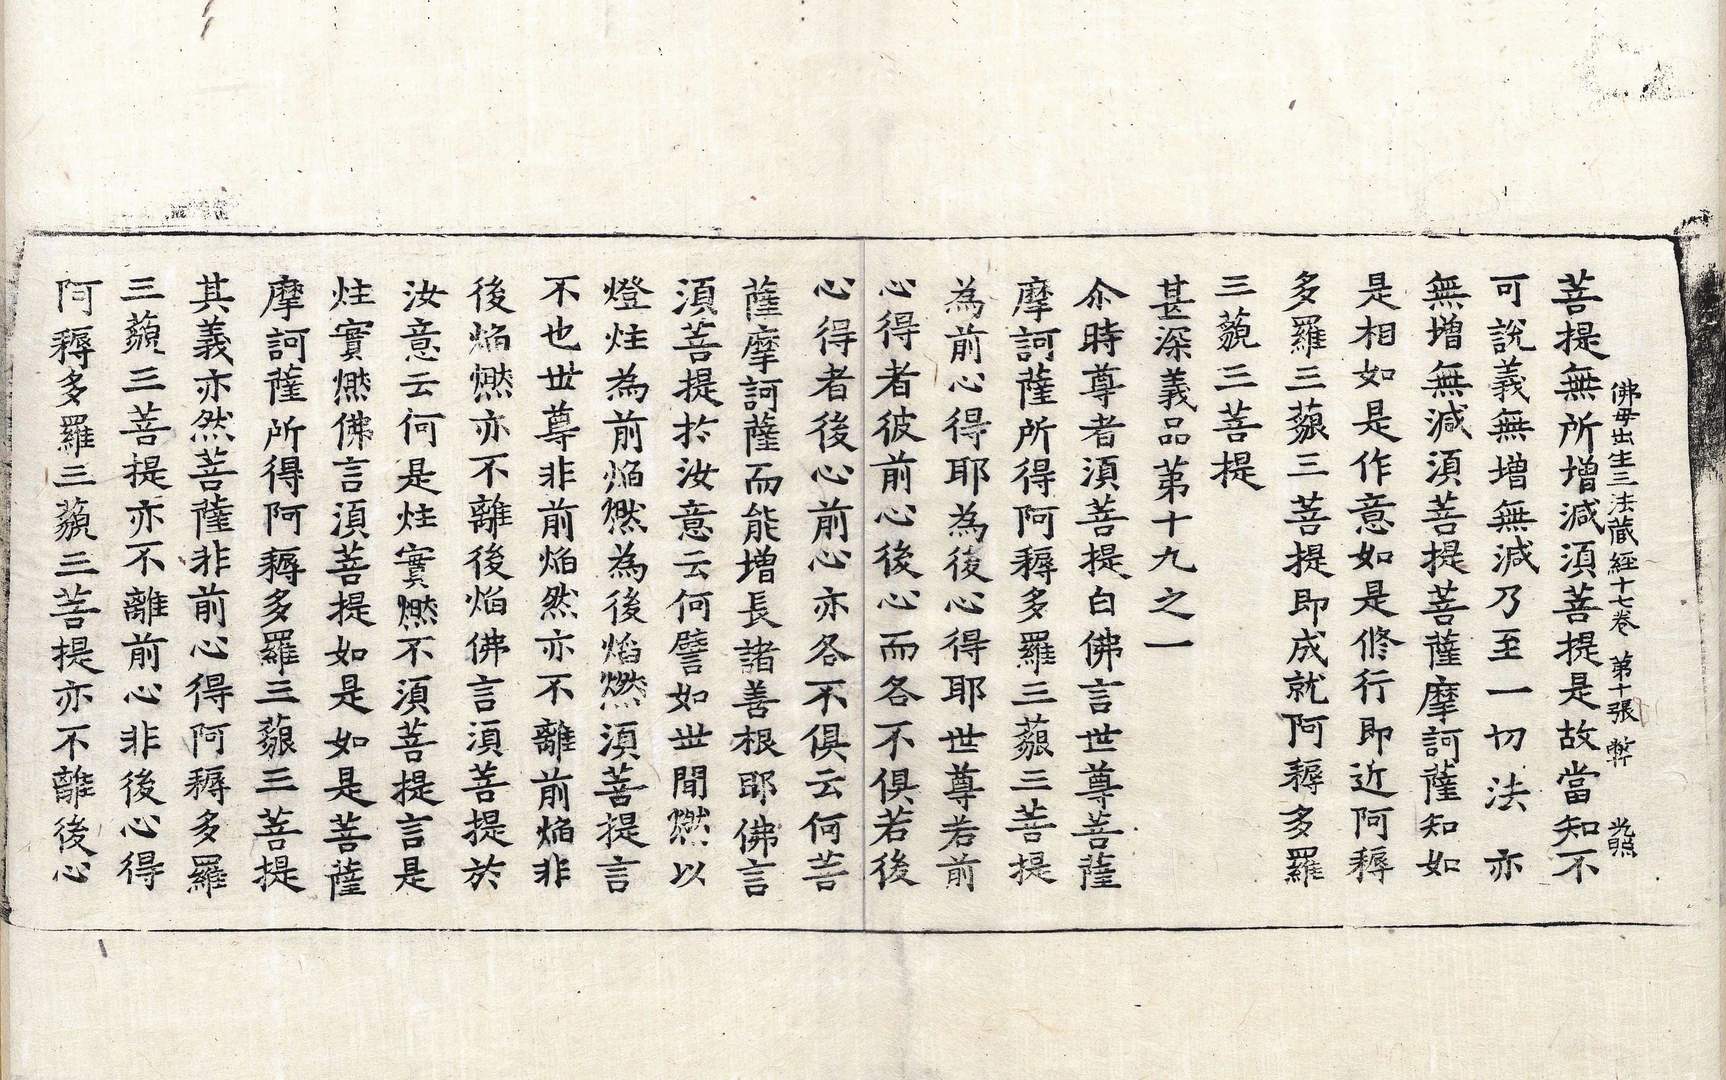 佛母出生三法藏經十七卷　第十張　幹　光照
菩提無所增減須菩提是故當知不
可說義無增無減乃至一切法亦
無增無減須菩提菩薩摩訶薩知如
是相如是作意如是修行即近阿耨
多羅三藐三菩提即成就阿耨多羅
三藐三菩提
甚深義品第十九之一
尒時尊者須菩提白佛言世尊菩薩
摩訶薩所得阿耨多羅三藐三菩提
為前心得耶為後心得耶世尊若前
心得者彼前心後心而各不俱若後
心得者後心前心亦各不俱云何菩
薩摩訶薩而能增長諸善根耶佛言
須菩提於汝意云何譬如世間燃以
燈炷為前焰燃為後焰燃須菩提言
不也世尊非前焰然亦不離前焰非
後焰燃亦不離後焰佛言須菩提於
汝意云何是炷實燃不須菩提言是
炷實燃佛言須菩提如是如是菩薩
摩訶薩所得阿耨多羅三藐三菩提
其義亦然菩薩非前心得阿耨多羅
三藐三菩提亦不離前心非後心得
阿耨多羅三藐三菩提亦不離後心